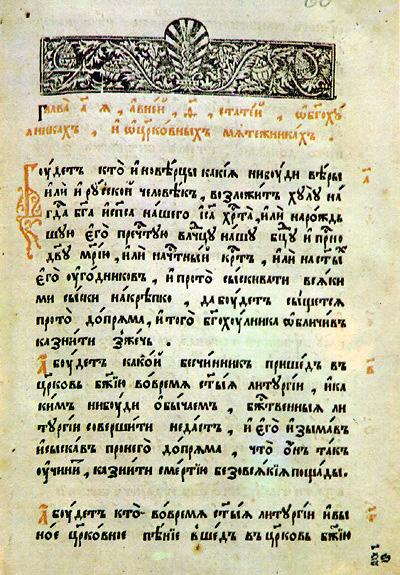 Глава̀ а҃ я , а в не́й , ѳ҃ , стате́й , ѡ бг҃охꙋ́
лникахъ , и ѡ цр҃ковныхъ мѧте́жникахъ .
Бꙋ́детъ кто̀ и̑новѣ́рцы какі́ѧ нибꙋди вѣ́ры
и̑лѝ и̑ рꙋ́ской человѣ́къ , возложи́тъ хꙋлꙋ̀ на
гд҇а бг҃а и̑ сп҃са на́шего і҆с҃а хр҇та̀ , и̑лѝ наро́ждь
шꙋю є̑го̀ пречⷭ҇тꙋю влⷣчцꙋ на́шꙋ бц҃ꙋ и̑ при́сно
дв҃ꙋ мр҃і́ю , и̑лѝ на чтⷭ҇ны́й кр҇тъ , и̑лѝ на ст҃ы́хъ
є̑го̀ оу̑го́дниковъ , и̑ про то̀ сы́скивати всѧ́ки
ми сы́ски накрѣ́пко , да бꙋ́детъ сы́щетсѧ
про то̀ допрѧ́ма , и̑ того̀ бг҃охꙋ́лника ѡ̑бличи́въ
казни́ти зже́чь .
А бꙋ́детъ како́й безчи́нникъ прише́дъ въ
цр҃ковь бж҃їю во врє́мѧ ст҃ы́ѧ литꙋргі́и , и̑ ка
ки́мъ нибꙋди ѻ̑бы́чаемъ , бж҇тве́нныѧ ли
тꙋргі́и соверши́ти не да́стъ , и̑ є̑го̀ и̑зыма́въ
и̑ сыска́въ про него̀ допрѧ́ма , что̀ ѻ̑нъ та́къ
оу̑чини́тъ , казни́ти сме́ртїю безо всѧ́кїѧ поща́ды .
А бꙋ́детъ кто̀ во врє́мѧ ст҃ы́ѧ литꙋргі́и и̑ в ы̑
но́е цр҃ко́вное пѣ́нїе вше́дъ въ цр҃ковь бж҃їю
а҃
в҃